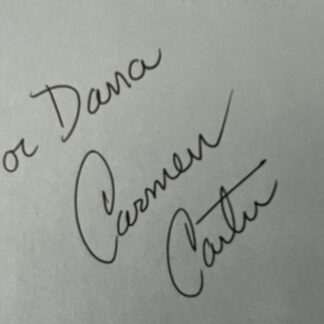 or Dana
Carmen
Carter